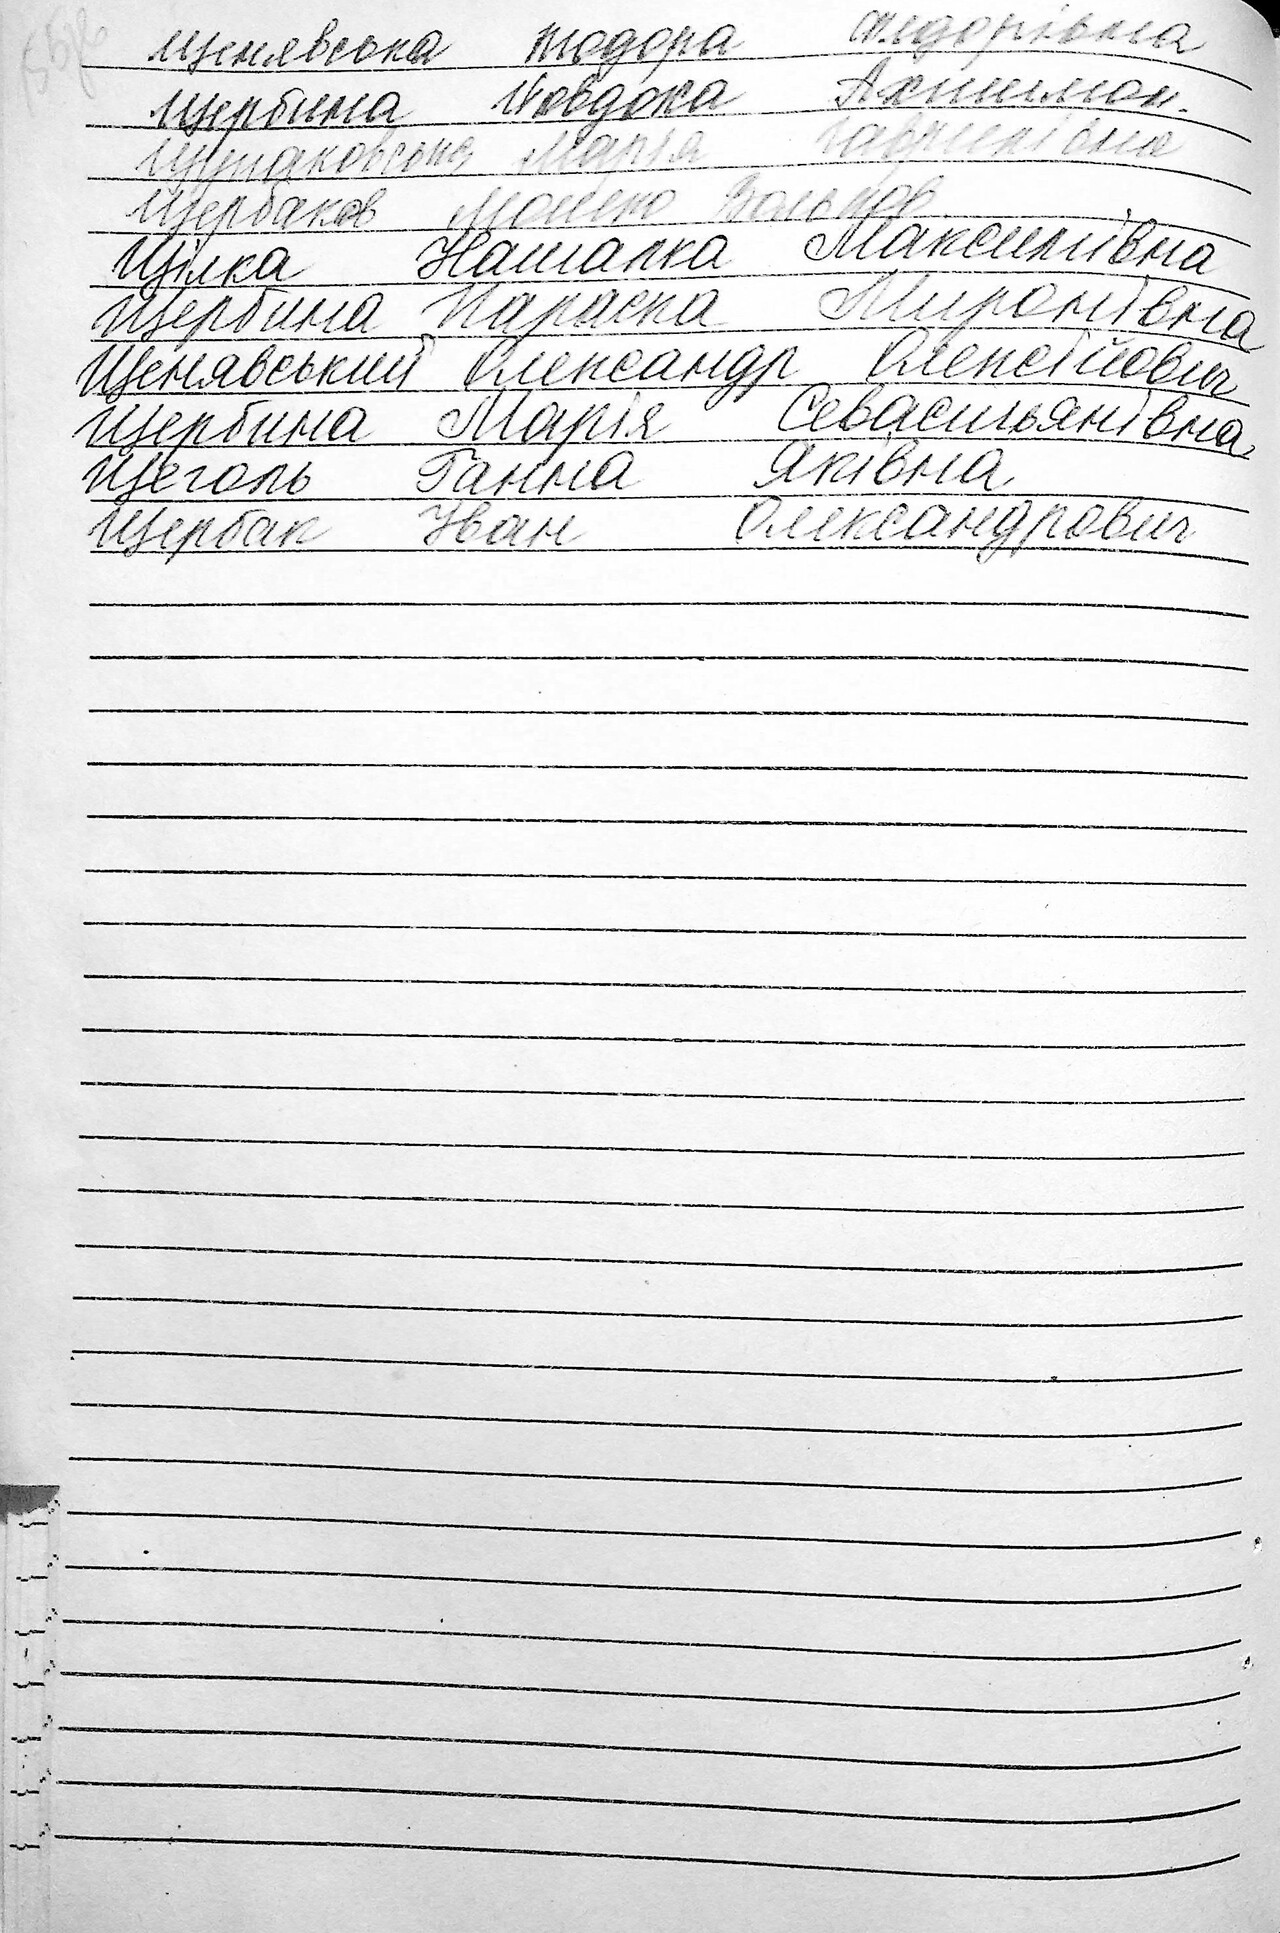 Щенявська Тодора Федорівна
Щербина Явдоха
Марія Гаврилівна
Щербаков Мойсей
Щілка Наталка Максимівна
Щербина Параска Миронівна
Щенявський Олександр Олексійович
Щербина Марія Севастьянівна
Щеголь Ганна Яківна
Щербак Іван Олександрович